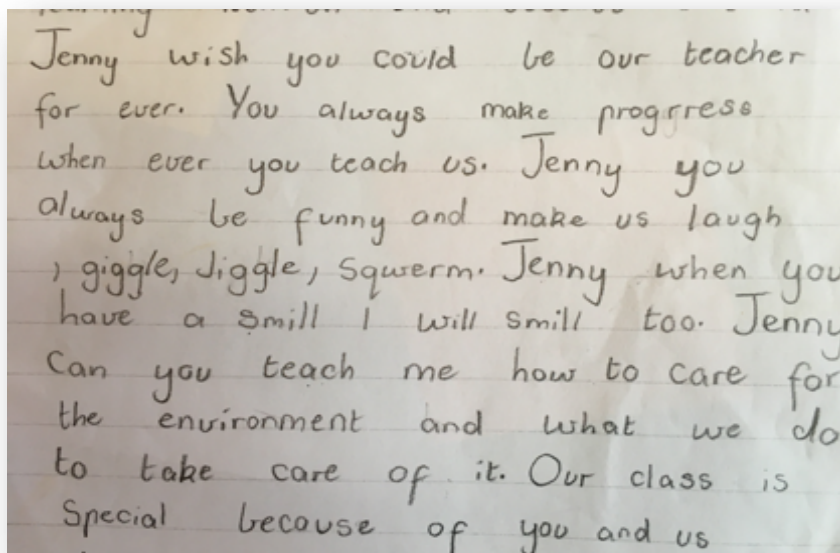 Jenny wish you could be our teacher
for ever. You always make progrress
when ever you teach us. Jenny you
always be funny and make us laugh
, giggle, Jiggle, Squerm. Jenny when you
have a smill I will smill too. Jenny
Can you teach me how to care for
the environment and what we do
to take care of it. Our class is
Special because of you and us